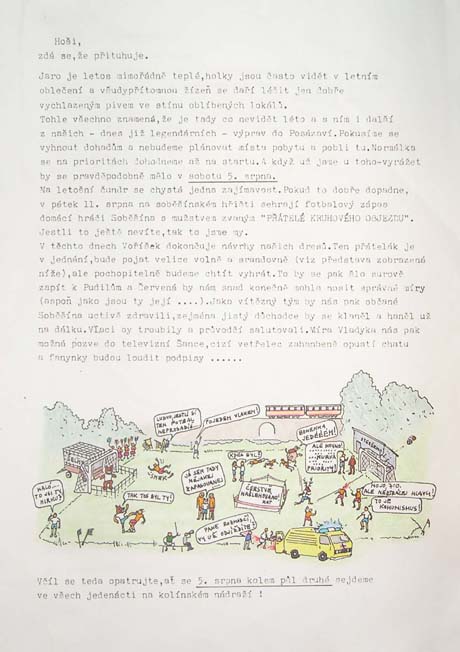 Hoši,
zdá se,že přituhuje.
Jaro je letos mimořádně teplé,holky jsou často vidět v letním
oblečení a všudypřítomnou žízeň se daří léčit jen dobře
vychlazeným pivem ve stínu oblíbených lokálů.
Tohle všechno znamená,že je tady co nevidět léto a s ním i další
z našich - dnes již legendárních - výprav do Posázaví.Pokusíme se
vyhnout dohadům a nebudeme plánovat místa pobytu a pobli tu.Normálka
se na prioritách dohodneme až na startu.A když už jsme u toho-vyrážet
by se pravděpodobně mělo v sobotu 5. srpna.
Na letošní čundr se chystá jedna zajímavost.Pokud to dobře dopadne,
v pátek 11. srpna na soběšínském hřišti sehrají fotbalový zápas
domácí hráči Soběšína s mužstvem zvaným "PŘÁTELÉ KRUHOVÉHO OBJEZDU".
Jestli to ještě nevíte,tak to jsme my.
V těchto dnech Voříšek dokončuje návrhy našich dresů.Ten přátelák je
v jednání,bude pojat velice volně a srandovně (viz představa zobrazená
níže),ale pochopitelně budeme chtít vyhrát.To by se pak šlo surově
zapít k Pudilům a Červená by nám snad konečně mohla nosit správné míry
(aspoň jako jsou ty její ....).Jako vítězný tým by nás pak občané
Soběšína uctivě zdravili,zejména jistý důchodce by se klaněl a haněl už
na dálku.Vlaci by troubily a průvodčí salutovali.Míra Vladyka nás pak
možná pozve do televizní Šance,cizí vetřelec zahanbeně opustí chatu
a fanynky budou loudit podpisy ......
POJEDEM VLAKEM!
BOHENKA
JEDÉÉÉM!
KDYŽ BYL!
SMRK
TAK TOS BYL TY!
HALO...
JÁ SEM TADY
NĚJAKEJ
ČERSTVĚ
TO JE
KOMUNISMUS!
Včíl se teda opatrujte,ať se 5. srpna kolem půl druhé sejdeme
ve všech jedenácti na kolínském nádraží !